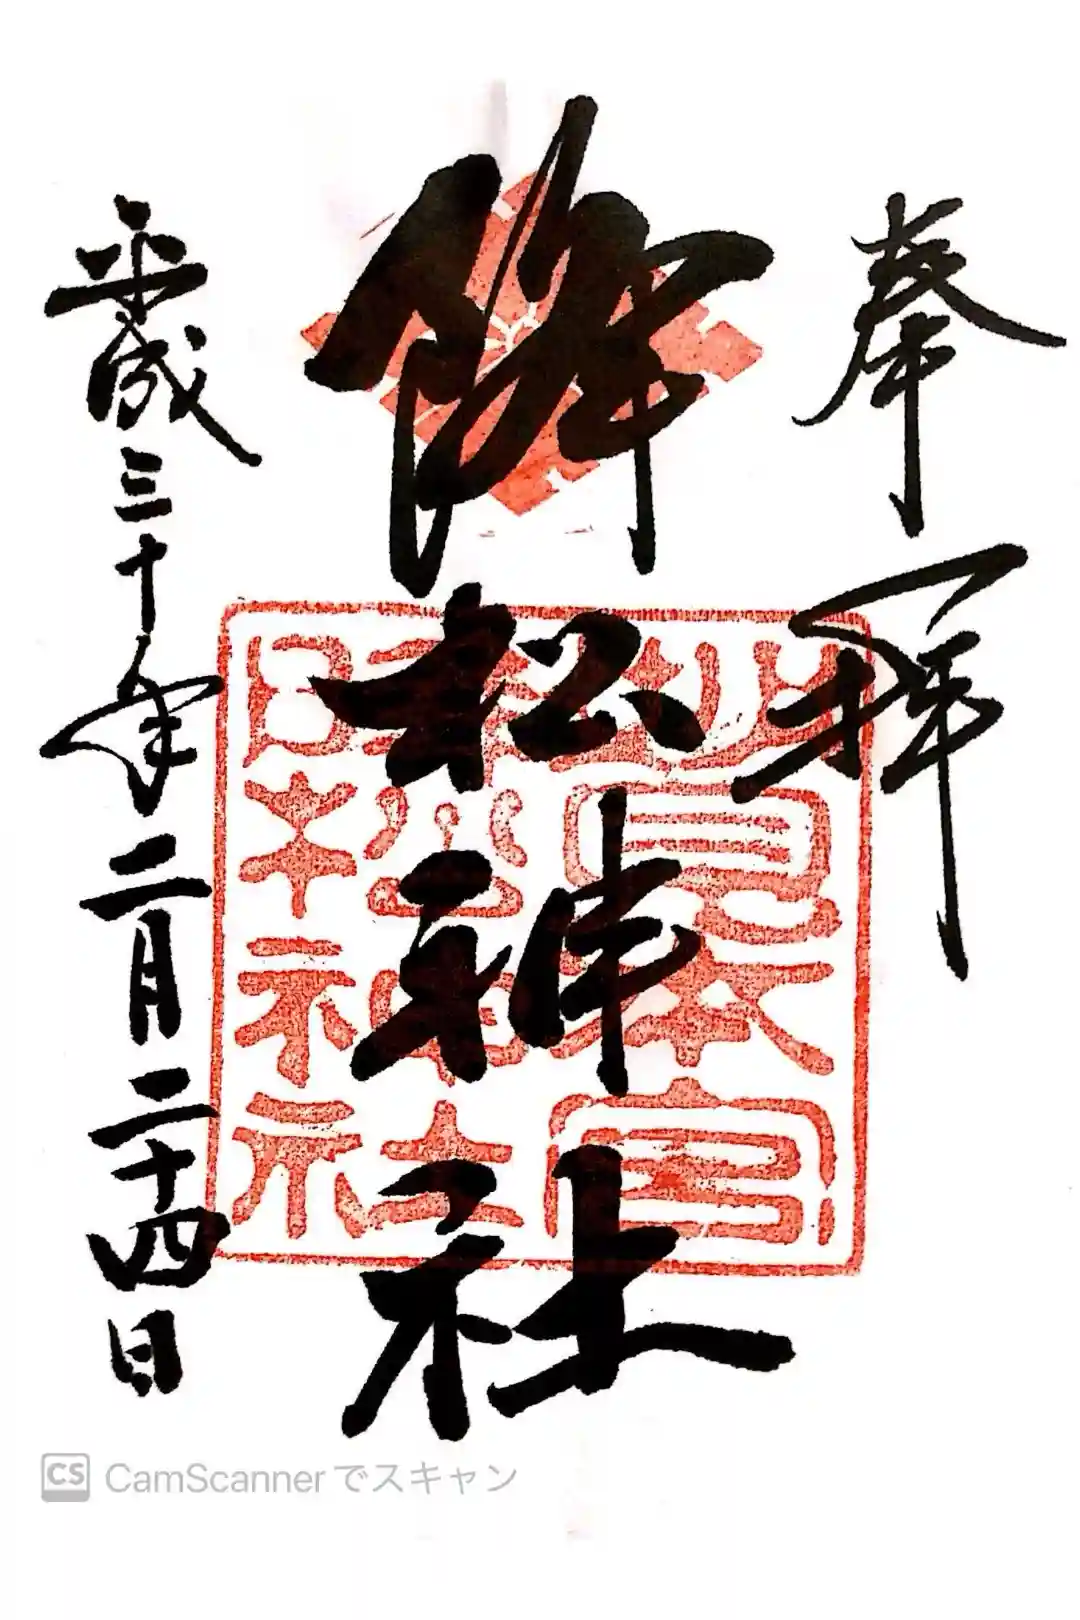 奉拝
降松神社
平成三十年二月二十四日
妙見本宮
降松神社
CS CamScannerでスキャン